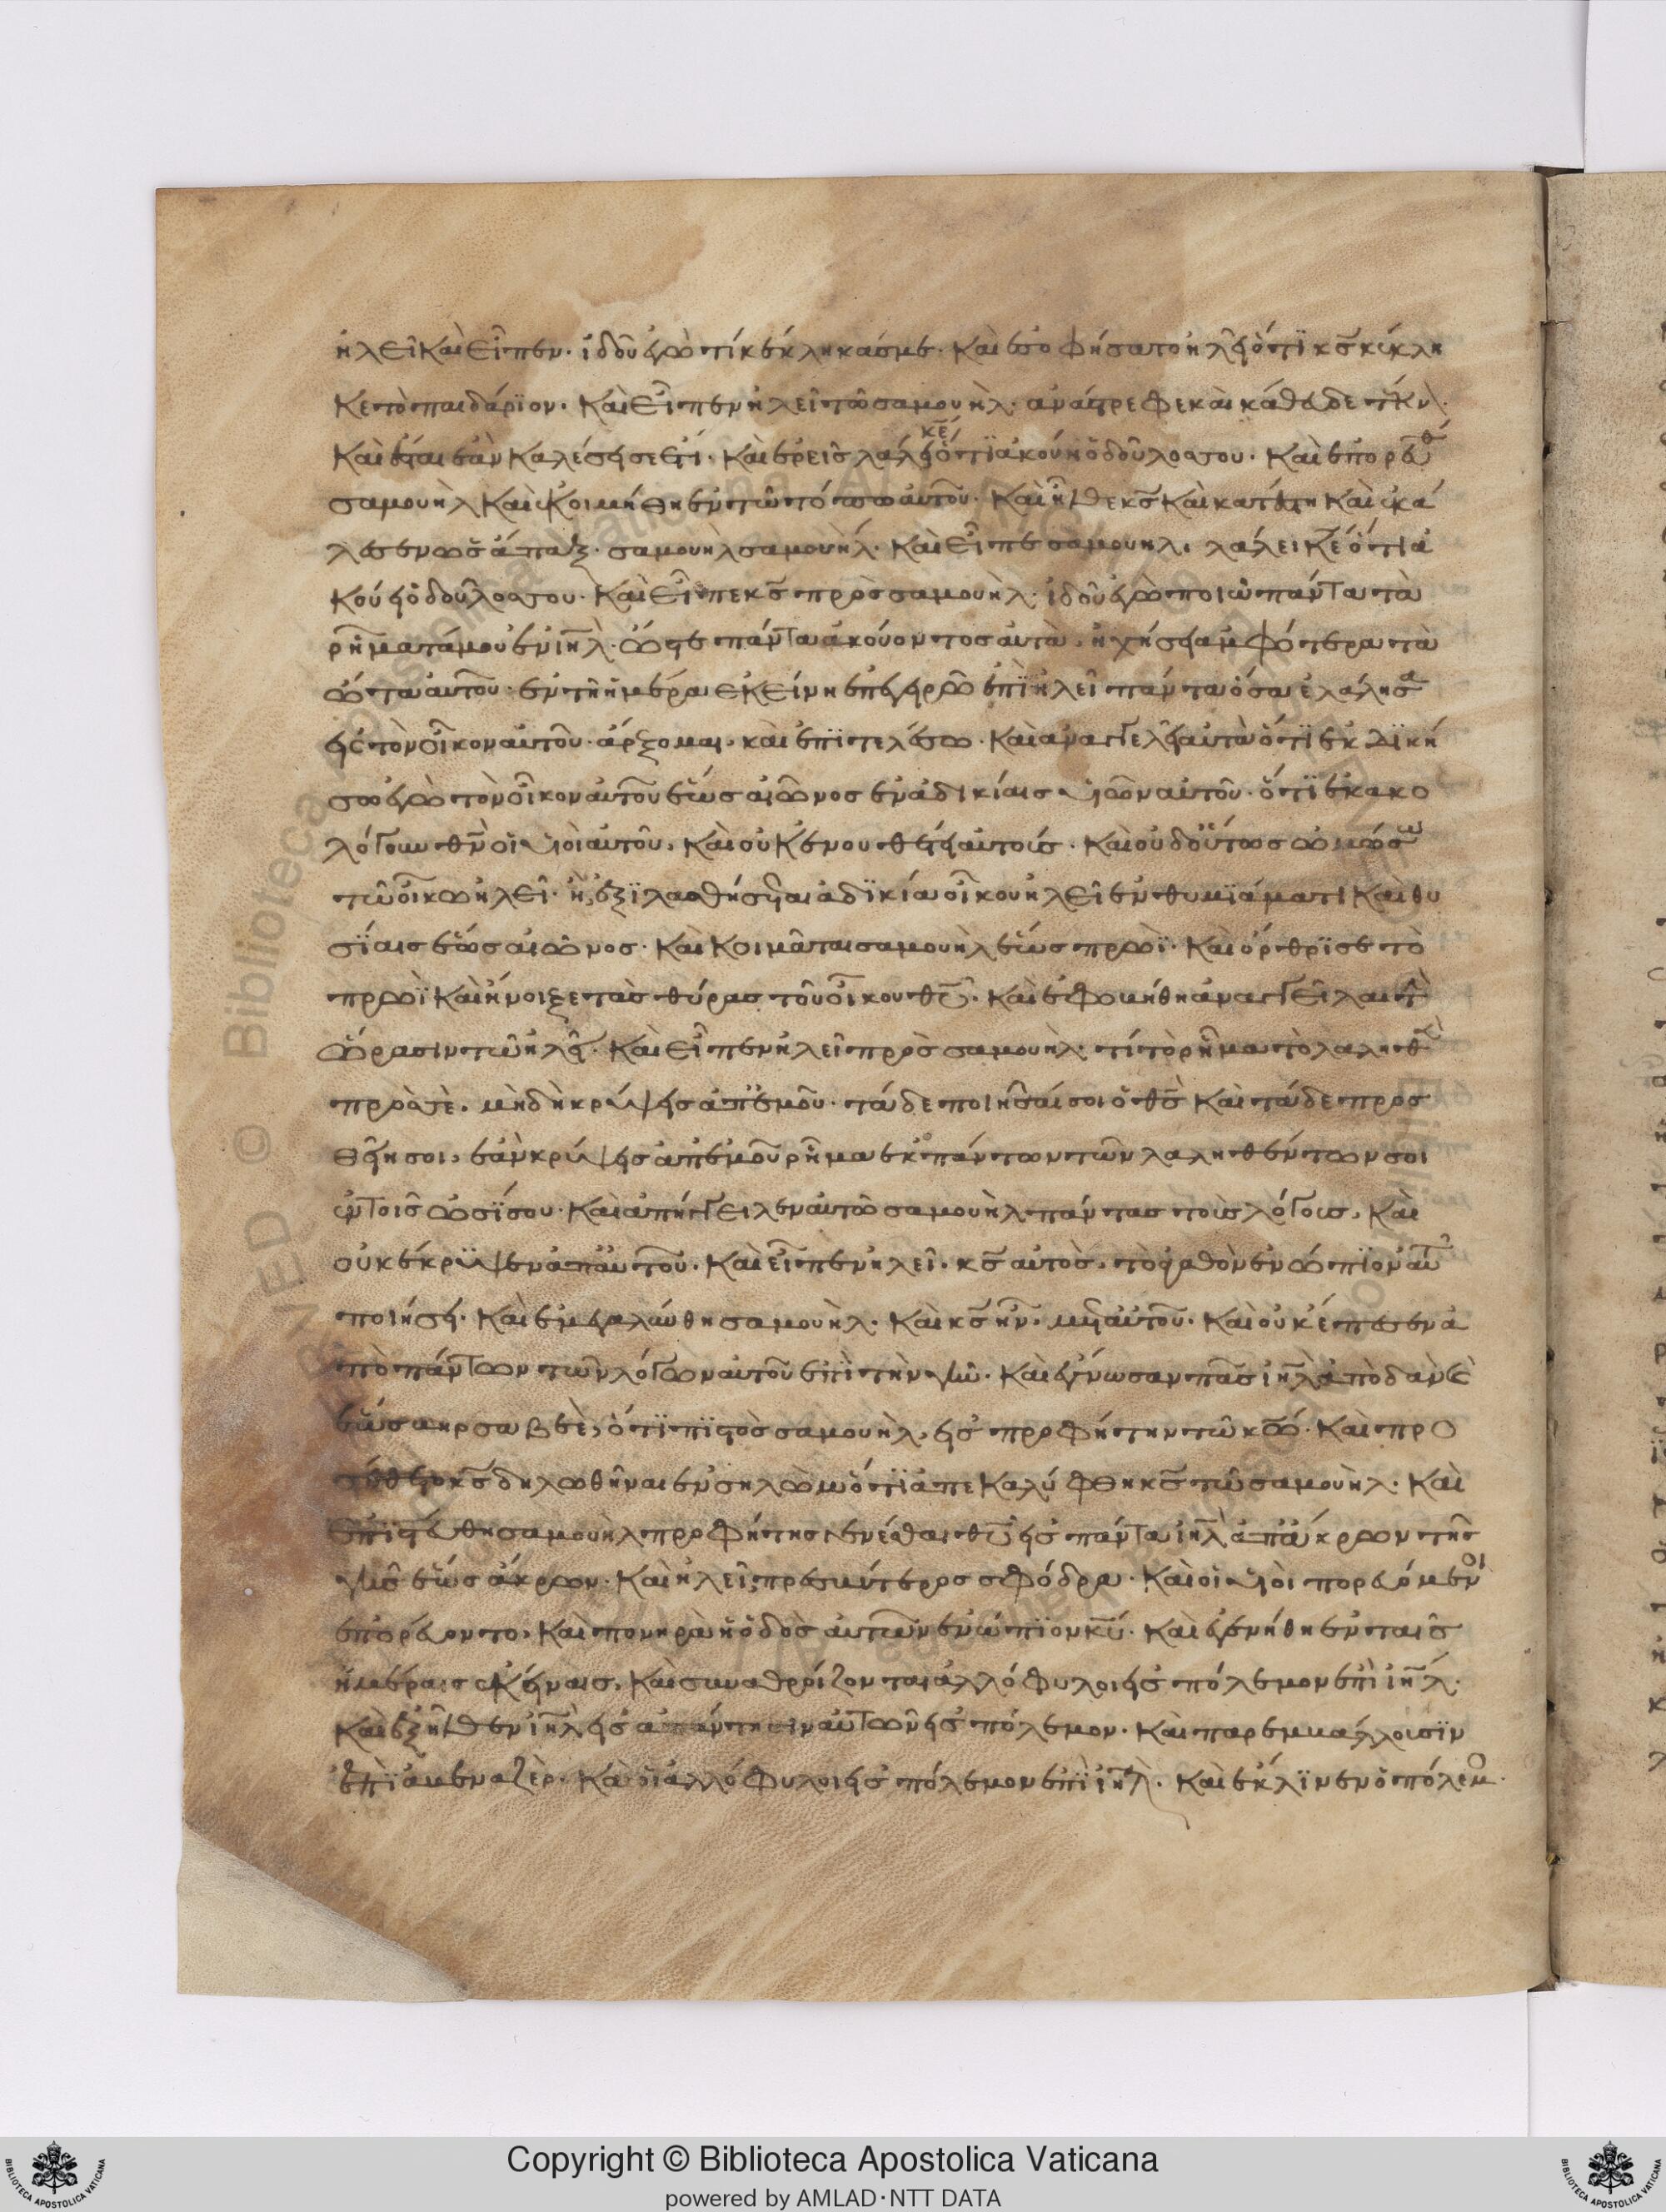 ἡλεῖ καὶ εἶπεν· ἰδοὺ ἐγὼ τί κέκληκάς με· καὶ ἐσοφήσατο ἡλεὶ ὅτι κ̅ς̅ κέκλη
κε τὸ παιδάριον· καὶ εἶπεν ἡλεῖ τῶ σαμουήλ· ἀνάστρεφε καὶ κάθευδε τέκνον·
καὶ ἔσται ἐὰν καλέσει σε ἔτι· καὶ ἐρεῖς λάλει κ̅ε̅ ὅτι ἀκούει ὁ δοῦλός σου· καὶ ἐπορεύθ
σαμουὴλ καὶ ἐκοιμήθη ἐν τῶ τόπω αὐτοῦ· καὶ ἦλθε κ̅ς̅ καὶ κατέστη καὶ ἐκά
λεσεν ὡς ἅπαξ· σαμουὴλ σαμουήλ· καὶ εἶπε σαμουηλ· λάλει κ̅ε̅ ὅτι ἀ
κούει ὁ δοῦλός σου· καὶ εἶπε κ̅ς̅ πρὸς σαμουήλ· ἰδοὺ ἐγὼ ποιῶ πάντα τὰ
ρήματά μου ἐν ι̅η̅λ̅· ὥστε παντὸς ἀκούοντος αὐτὰ, ἠχήσει ἀμφότερα τὰ
ὦτα αὐτοῦ· ἐν τῆ ἡμέρα ἐκείνη ἐπεγερῶ ἐπὶ ἡλεῖ πάντα ὅσα ἐλάλησα
εἰς τὸν οἶκον αὐτοῦ· ἄρξομαι, καὶ ἐπιτελέσω· καὶ ἀναγγελεῖ αὐτὰ ὅτι ἐκδική
σω ἐγὼ τὸν οἶκον αὐτοῦ ἕως αἰῶνος ἐν ἀδικίαις υἱῶν αὐτοῦ· ὅτι ἐκακο
λόγουν θ̅ν̅ οἱ υἱοὶ αὐτοῦ, καὶ οὐκ ἐνουθέτει αὐτούς· καὶ οὐδοὕτως ὤμοσα
τῶ οἴκω ἡλεῖ· ἢ ἐξιλασθήσεται ἀδικία οἴκου ἡλεῖ ἐν θυμιάματι καὶ θυ
σίαις ἕως αἰῶνος· καὶ κοιμᾶται σαμουὴλ ἕως πρωΐ· καὶ ὄρθρισε τὸ
πρωῒ καὶ ἤνοιξε τὰς θύρας τοῦ οἴκου θ̅υ̅· καὶ ἐφοβήθη ἀναγγεῖλαι τὴν
ὅρασιν τῶ ἡλεῖ· καὶ εἶπεν ἡλεῖ πρὸς σαμουήλ· τί τὸ ρῆμα τὸ λαληθὲν
πρὸς σὲ, μὴ δὴ κρύψεις ἀπ ἐμοῦ· τάδε ποιήσαι σοι ὁ θ̅ς̅ καὶ τάδε προσ
θείη σοι, ἐὰν κρύψεις ἀπ ἐμοῦ ρῆμα ἐκ πάντων τῶν λαληθέντων σοι
ἐν τοῖς ὠσί σου· καὶ ἀπήγγειλεν αὐτῶ σαμουὴλ πάντας τοὺς λόγους, καὶ
οὐκ ἔκρυψεν ἀπ αὐτοῦ· καὶ εἶπεν ἡλεῖ· κ̅ς̅ αὐτὸς, τὸ ἀγαθὸν ἐνώπιον αὐτοῦ
ποιήσει· καὶ ἐμεγαλύνθη σαμουήλ· καὶ κ̅ς̅ ἦν μετ αὐτοῦ· καὶ οὐκ ἔπεσεν ἀ
πὸ πάντων τῶν λόγων αὐτοῦ ἐπὶ τὴν γῆν· καὶ ἔγνωσαν πᾶς ι̅η̅λ̅ ἀπὸ δὰν ἐ
ἕως βηρσαβεὲ, ὅτι πιστὸς σαμουὴλ, εἰς προφήτην τῶ κ̅ω̅· καὶ προ
σέθετο κ̅ς̅ δηλωθῆναι ἐν σηλὼμ ὅτι ἀπεκαλύφθη κ̅ς̅ τῶ σαμουήλ· καὶ
ἐπιστεύθη σαμουὴλ προφήτης γενέσθαι θ̅υ̅ εἰς πάντα ι̅η̅λ̅ ἀπ ἄκρων τῆς
γῆς ἕως ἄκρων· καὶ ἡλεῖ πρεσβύτερος σφόδρα· καὶ οἱ υἱοὶ πορευόμενοι
ἐπορεύοντο, καὶ πονηρὰ ἡ ὁδὸς αὐτῶν ἐνώπιον κ̅υ̅· καὶ ἐγενήθη ἐν ταῖς
ἡμέραις ἐκείναις, καὶ συναθροίζονται ἀλλόφυλοι εἰς πόλεμον ἐπὶ ι̅η̅λ̅·
καὶ ἐξῆλθεν ι̅η̅λ̅ εἰς ἀπάντησιν αὐτῶν εἰς πόλεμον· καὶ παρεμβάλλουσιν
ἐπὶ ἀβεναζέρ· καὶ οἱ ἀλλόφυλοι εἰς πόλεμον ἐπὶ ι̅η̅λ̅· καὶ ἔκλινεν ὁ πόλεμο·
Copyright © Biblioteca Apostolica Vaticana
powered by AMLAD·NTT DATA